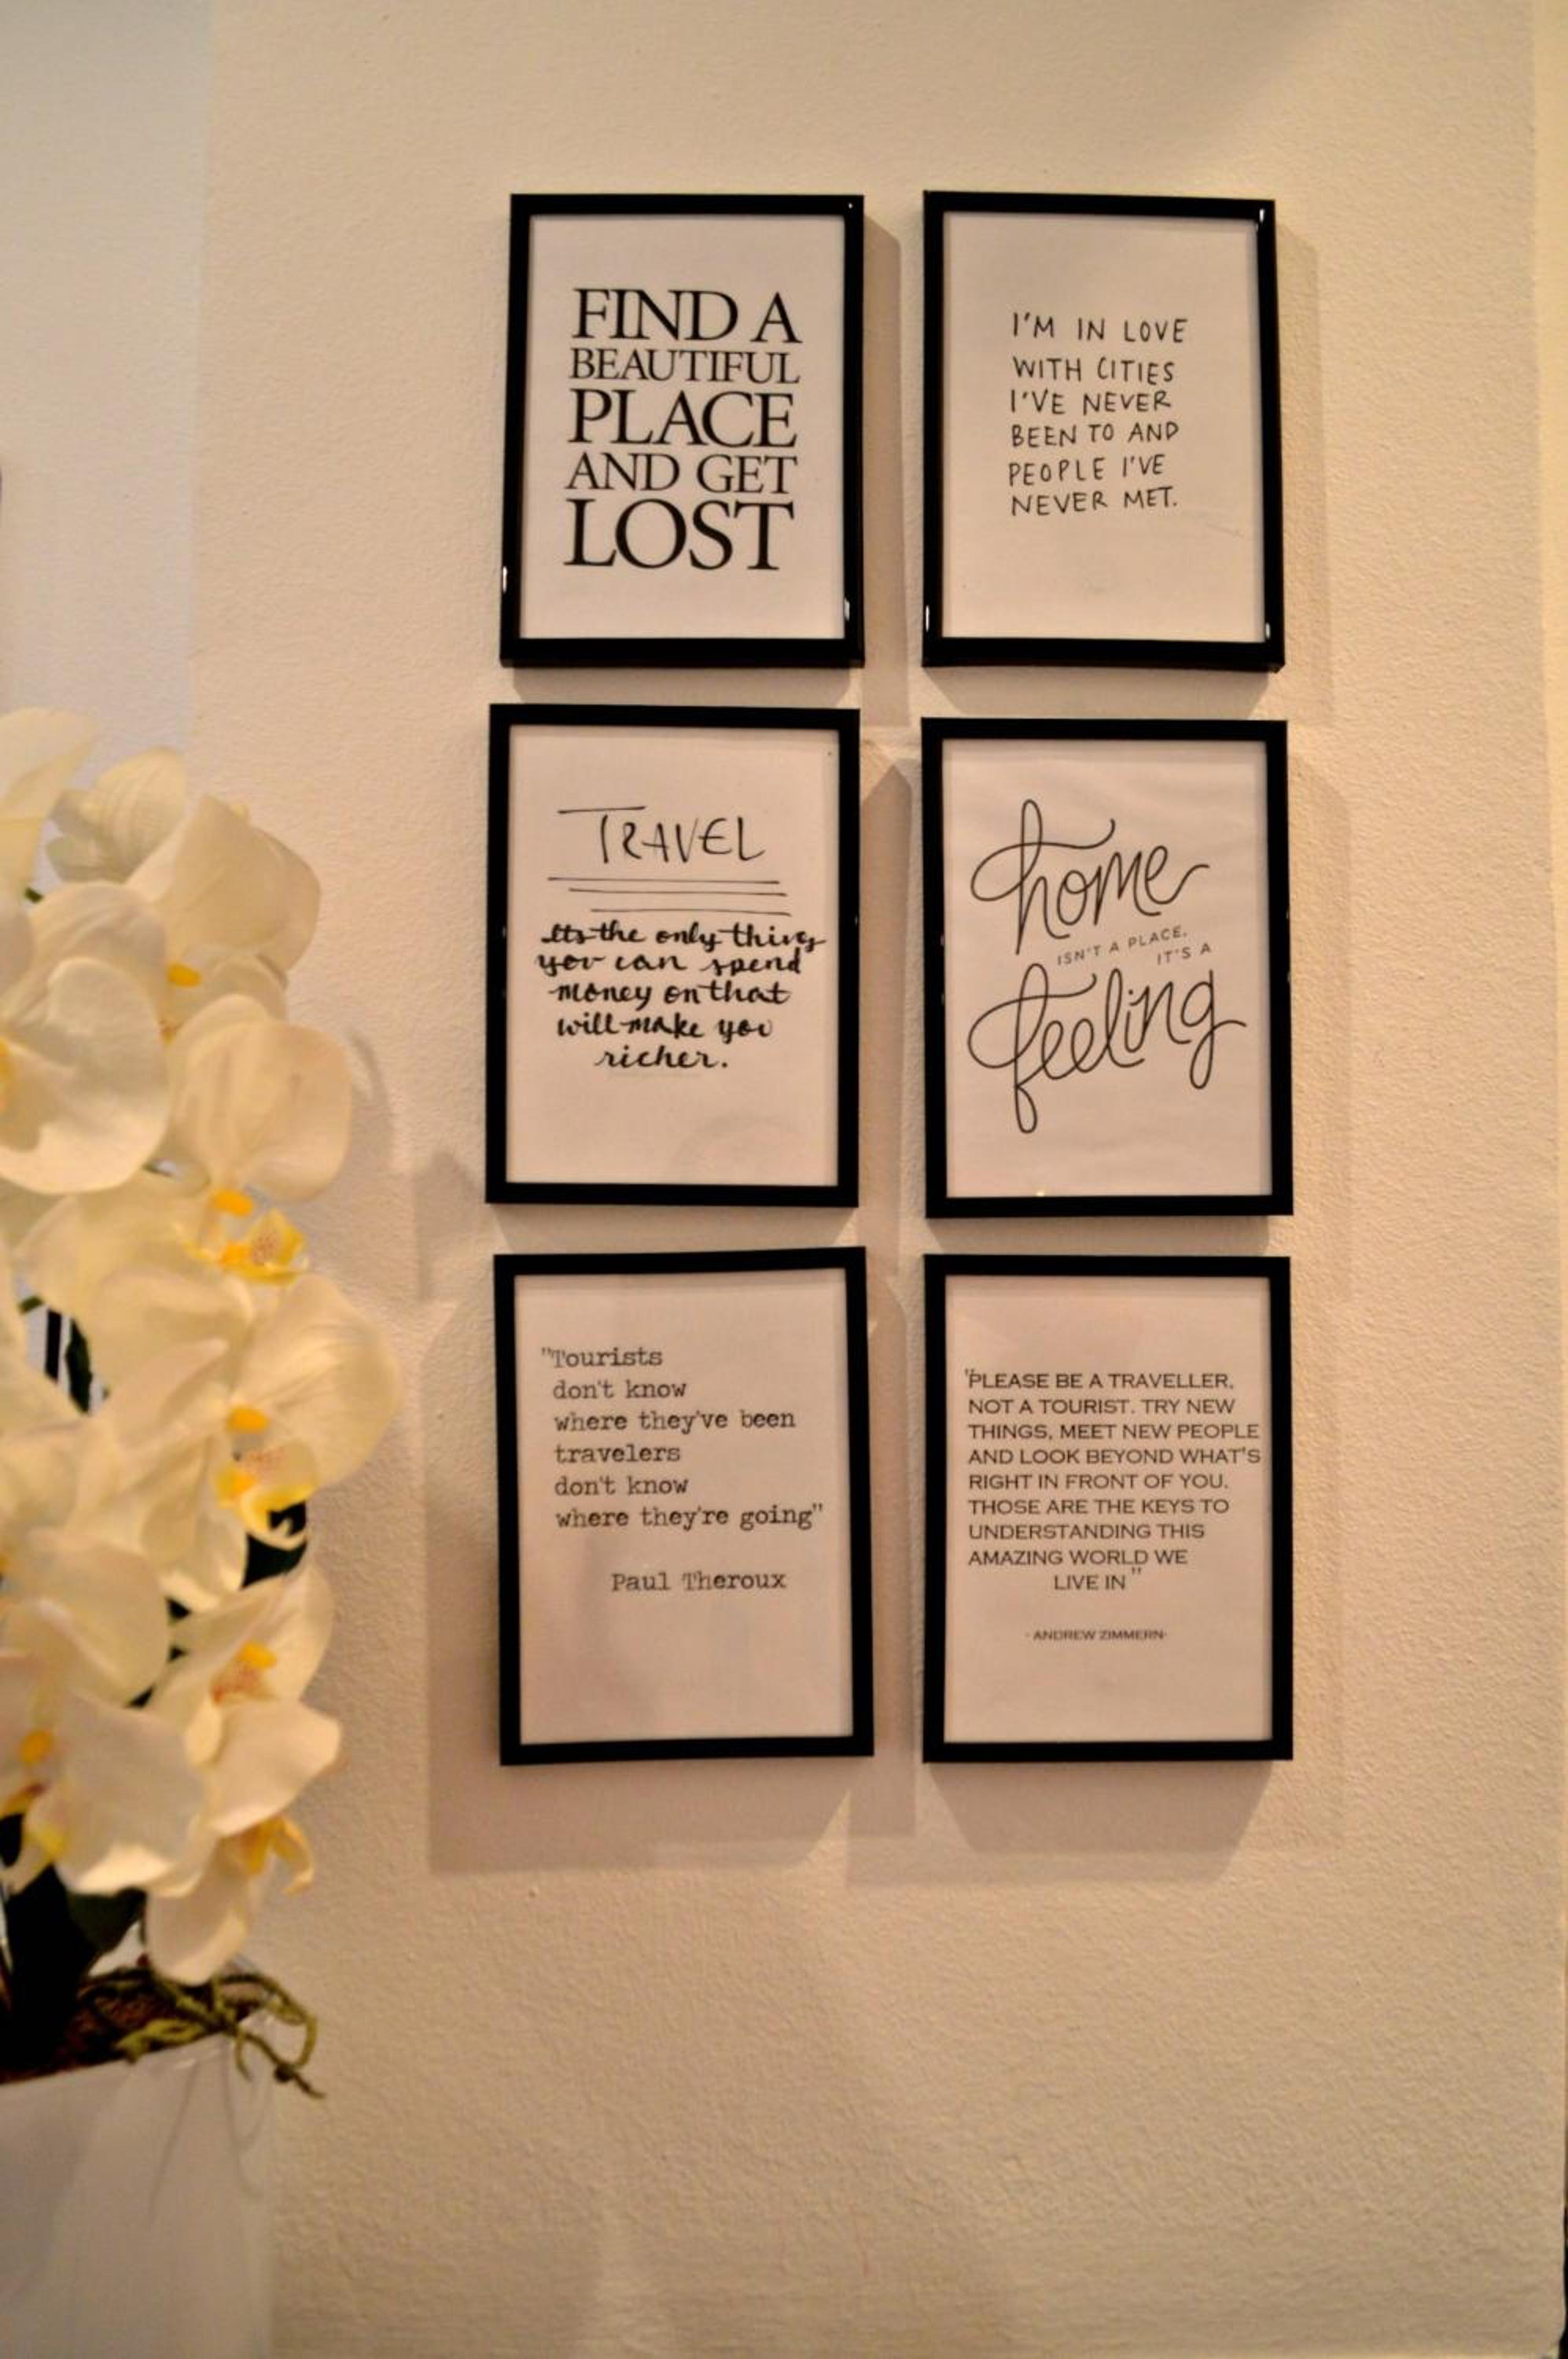 FIND A
BEAUTIFUL
PLACE
AND GET
LOST
I'M IN LOVE
WITH CITIES
I'VE NEVER
BEEN TO AND
PEOPLE I'VE
NEVER MET.
TRAVEL
its the only thing
you can spend
money on that
will make you
richer.
home
ISN'T A PLACE,
IT'S A
feeling
"Tourists
don't know
where they've been
travelers
don't know
where they're going"
Paul Theroux
"PLEASE BE A TRAVELLER,
NOT A TOURIST. TRY NEW
THINGS, MEET NEW PEOPLE
AND LOOK BEYOND WHAT'S
RIGHT IN FRONT OF YOU.
THOSE ARE THE KEYS TO
UNDERSTANDING THIS
AMAZING WORLD WE
LIVE IN"
- ANDREW ZIMMERN-